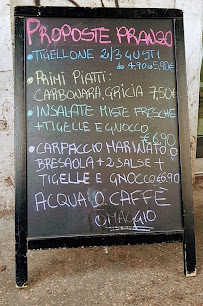 PROPOSTE PRANZO
• TIGELLONE 2/3 GUSTI
da 4,90 a 5,90€
• PRIMI PIATTI:
CARBONARA, GRICIA 7,50€
• INSALATE MISTE FRESCHE
+ TIGELLE E GNOCCO
€6,90
• CARPACCIO MARINATO O
BRESAOLA + 2 SALSE +
TIGELLE E GNOCCO €6,90
ACQUA O CAFFÈ
OMAGGIO